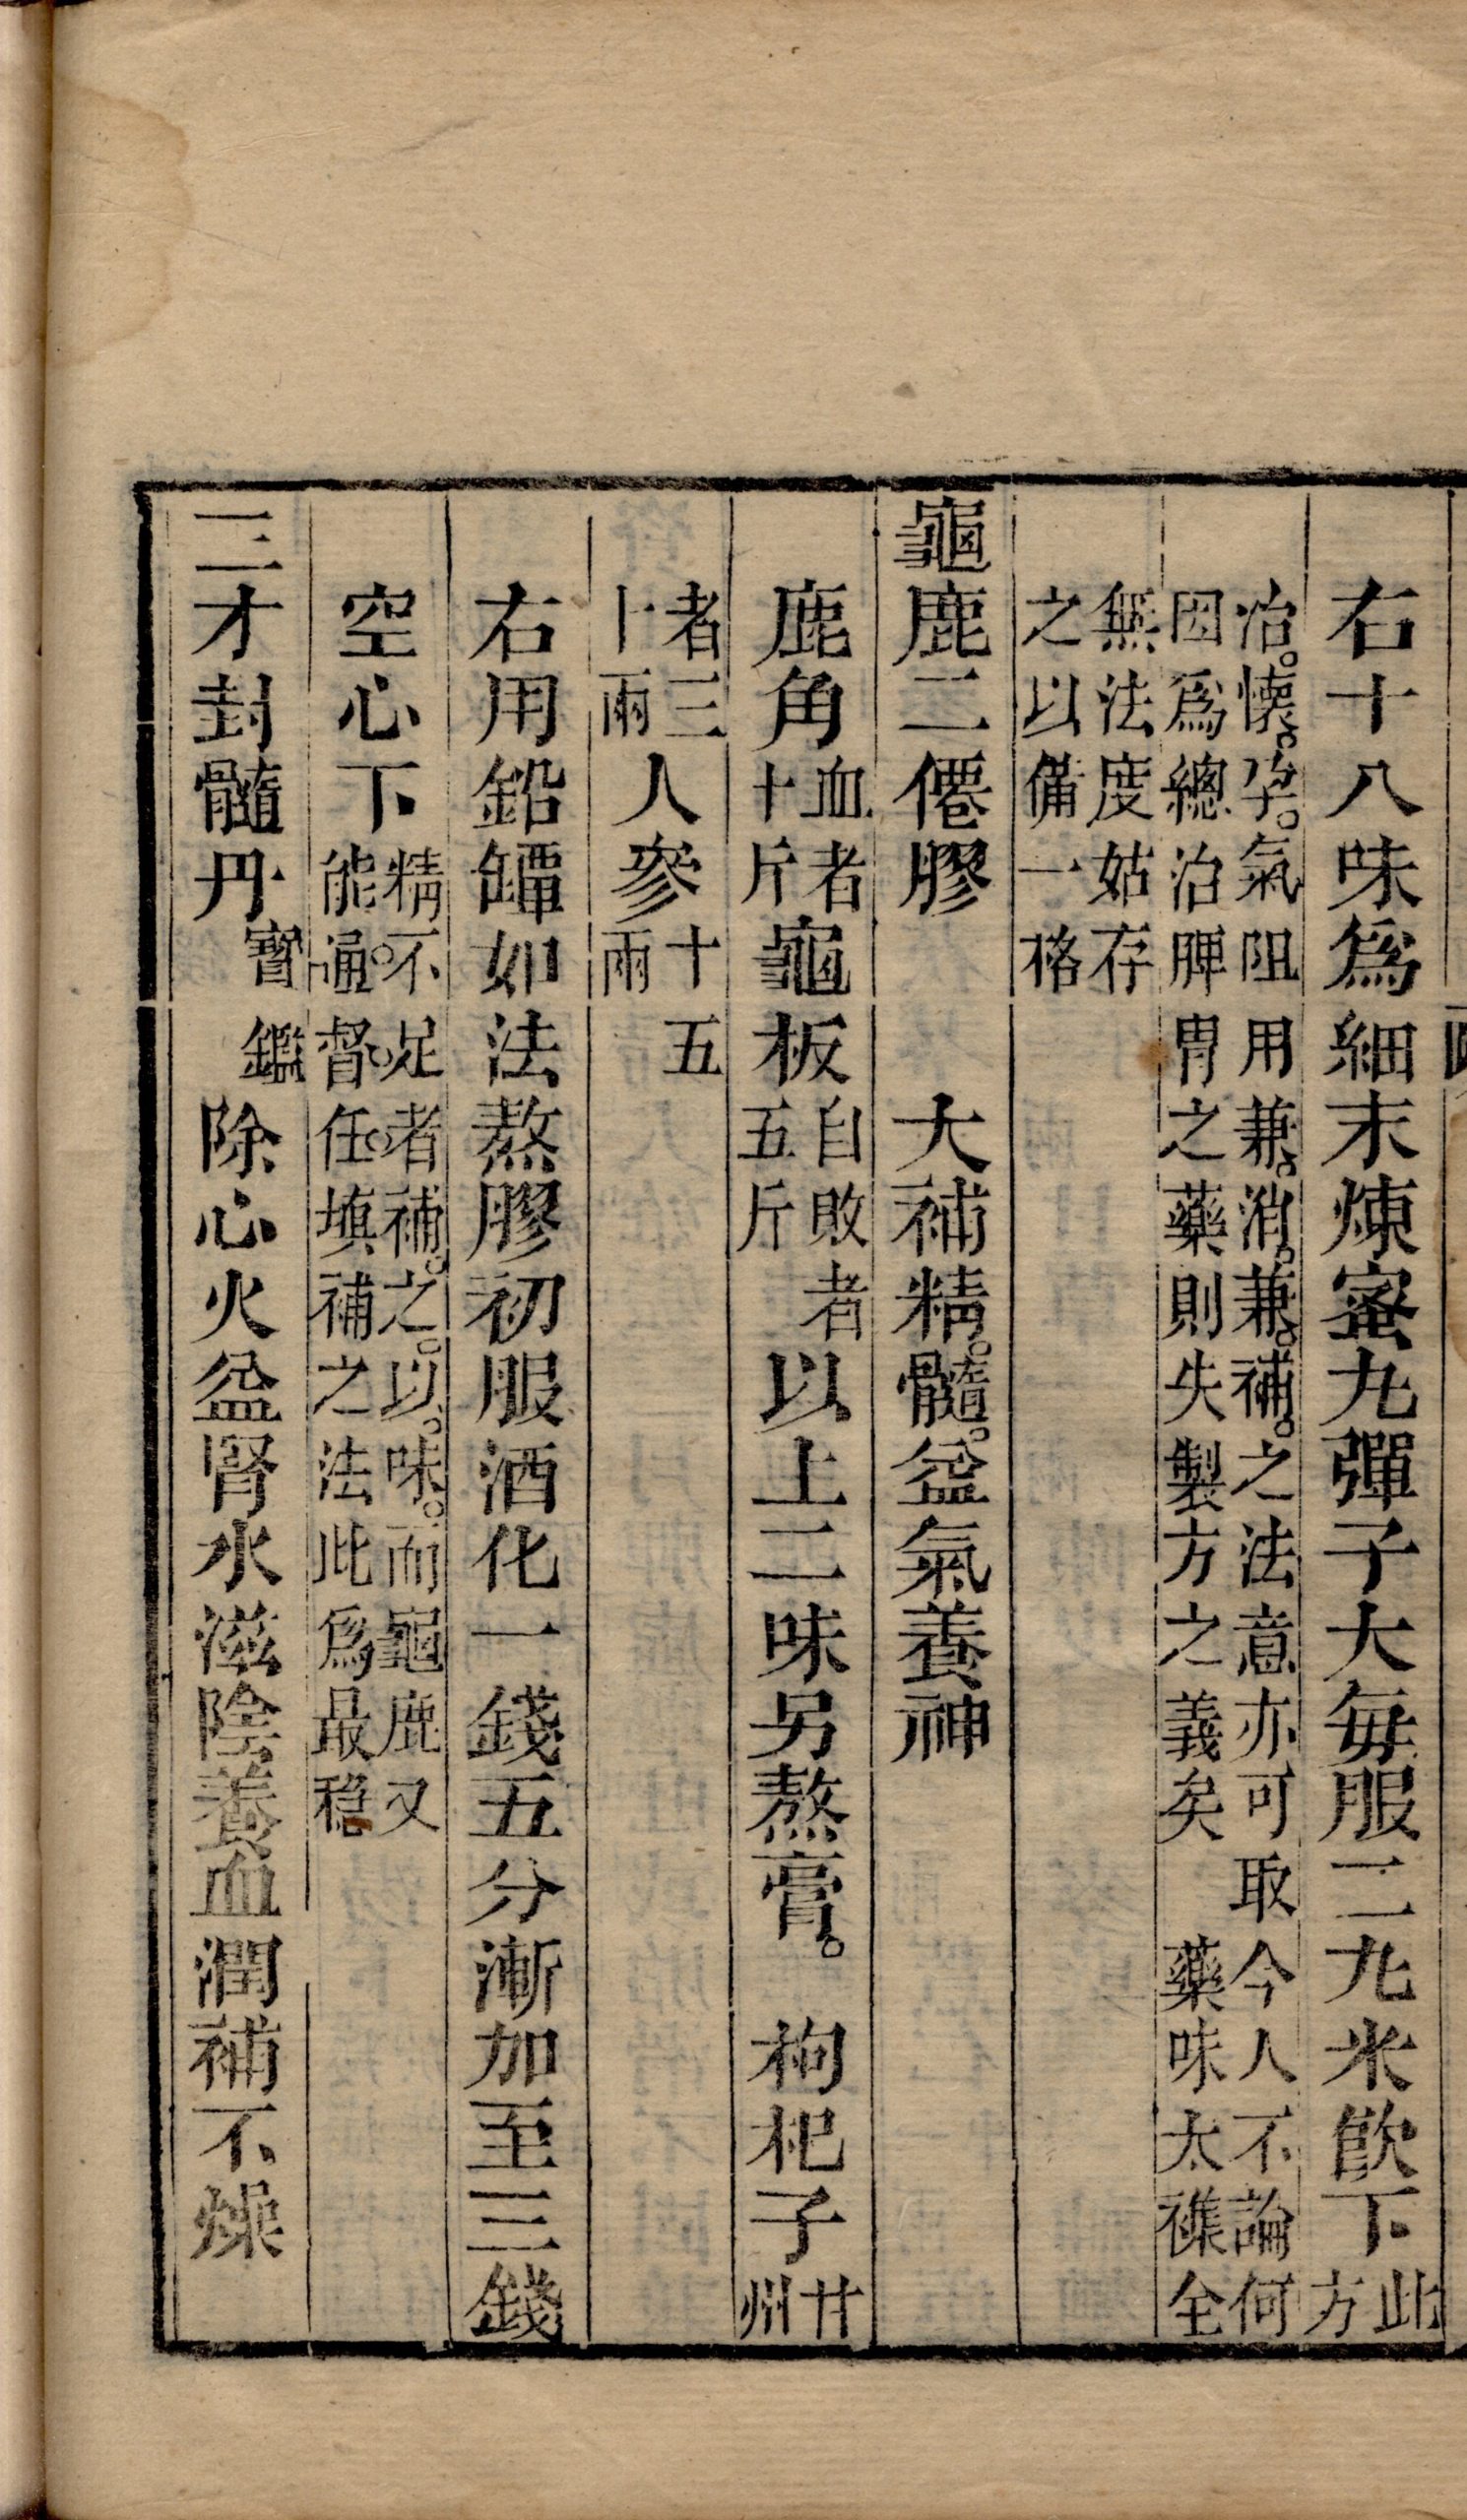 右十八味爲細末煉蜜丸彈子大每服二丸米飲下此方
治。懷。孕。氣阻用兼。消。兼。補。之法意亦可取今人不論何
因爲總治脾胃之藥則失製方之義矣　藥味太襍全
無法度姑存
之以備一格
龜鹿二僊膠　大補精。髓。益氣養神
鹿角血者十斤龜板自敗者五斤以上二味另熬膏。　枸杞子甘州
者三十兩人參十五兩
右用鉛罈如法熬膠初服酒化一錢五分漸加至三錢
空心下精不足者補。之。以。味。而龜鹿又能通。督。任。填補之法此爲最穩
三才封髓丹寶鑑　除心火益腎水滋陰養血潤補不燥